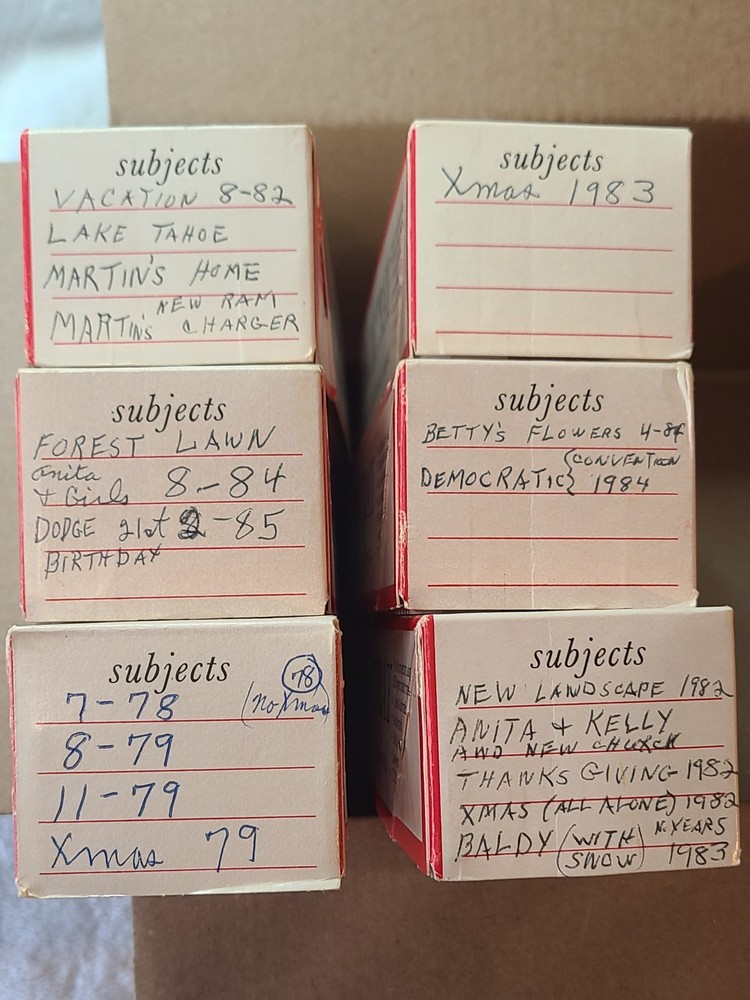 subjects
VACATION 8-82
LAKE TAHOE
MARTIN'S HOME
NEW RAM
MARTIN'S CHARGER
subjects
Xmas 1983
subjects
FOREST LAWN
Anita
+ Girls 8-84
DODGE 21st 2-85
BIRTHDAY
subjects
BETTY'S FLOWERS 4-84
DEMOCRATIC { CONVENTION
1984
subjects
7-78 (no Xmas 78)
8-79
11-79
Xmas 79
subjects
NEW LANDSCAPE 1982
ANITA + KELLY
AND NEW CHURCH
THANKS GIVING 1982
XMAS (ALL ALONE) 1982
BALDY (WITH SNOW) N.YEARS 1983